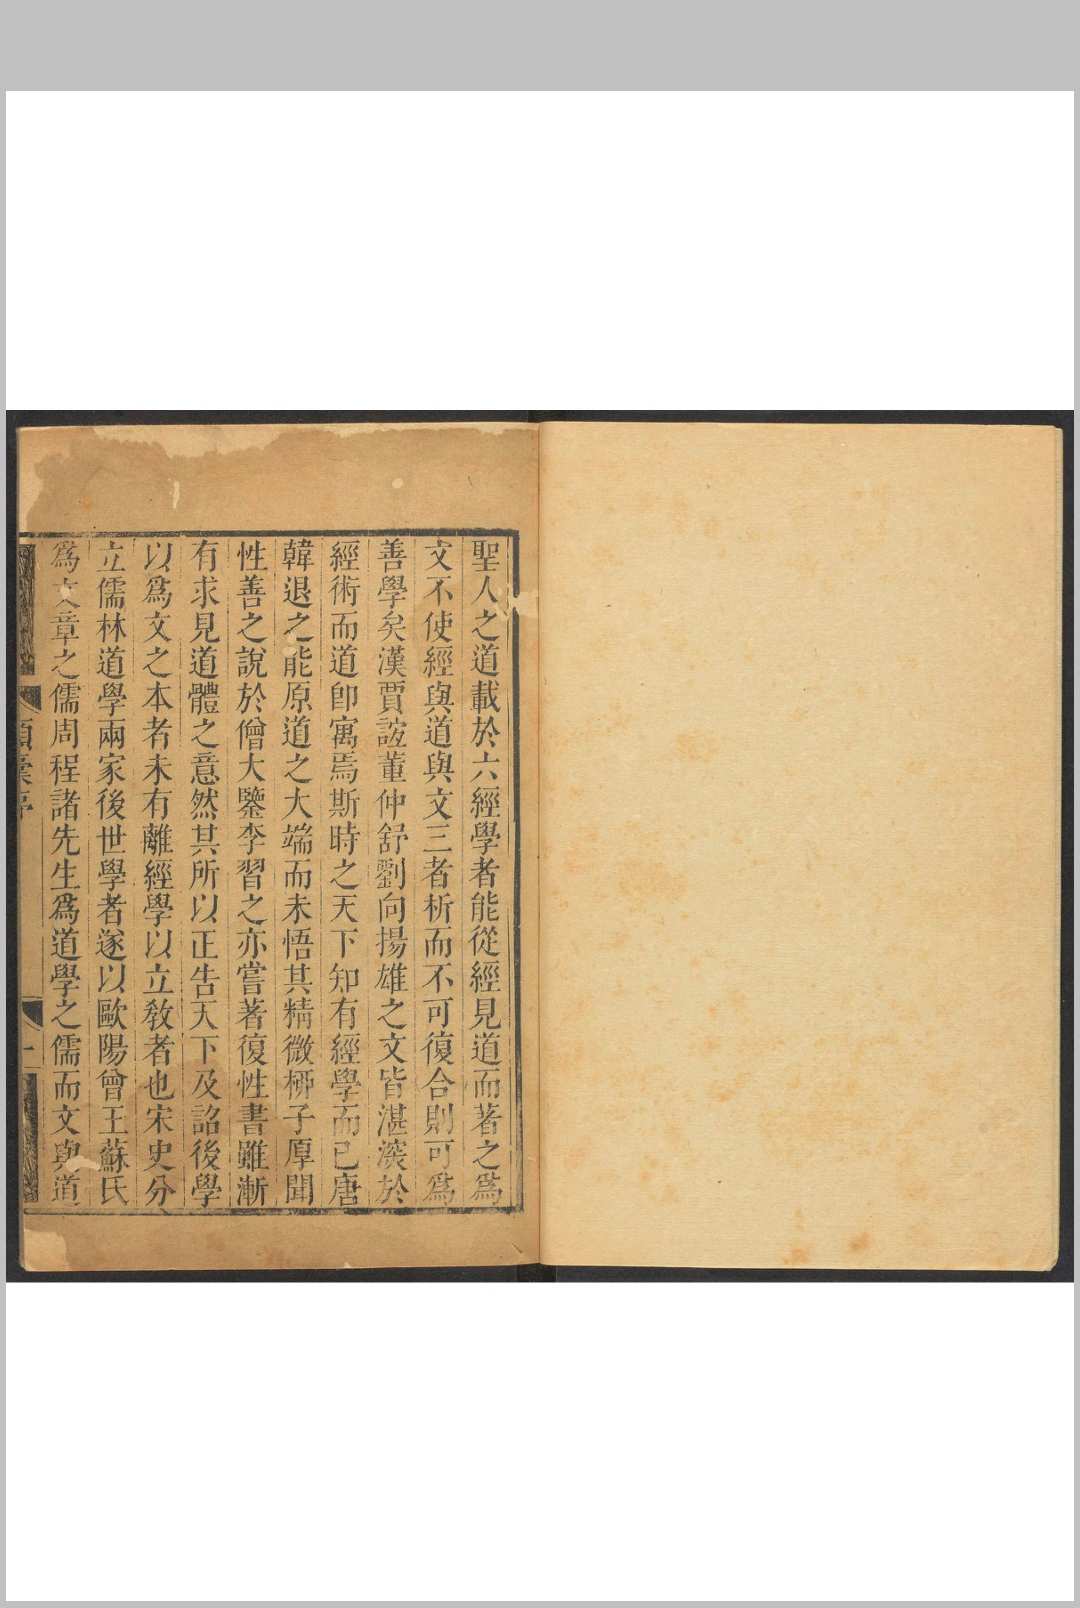 聖人之道載於六經學者能從經見道而著之爲
文不使經與道與文三者析而不可復合則可爲
善學矣漢賈誼董仲舒劉向揚雄之文皆湛深於
經術而道卽寓焉斯時之天下知有經學而已唐
韓退之能原道之大端而未悟其精微栁子厚聞
性善之說於僧大鑒李習之亦嘗著復性書雖漸
有求見道體之意然其所以正告天下及詔後學
以爲文之本者未有離經學以立敎者也宋史分
立儒林道學兩家後世學者遂以歐陽曾王蘇氏
爲文章之儒周程諸先生爲道學之儒而文與道
類稾序
一